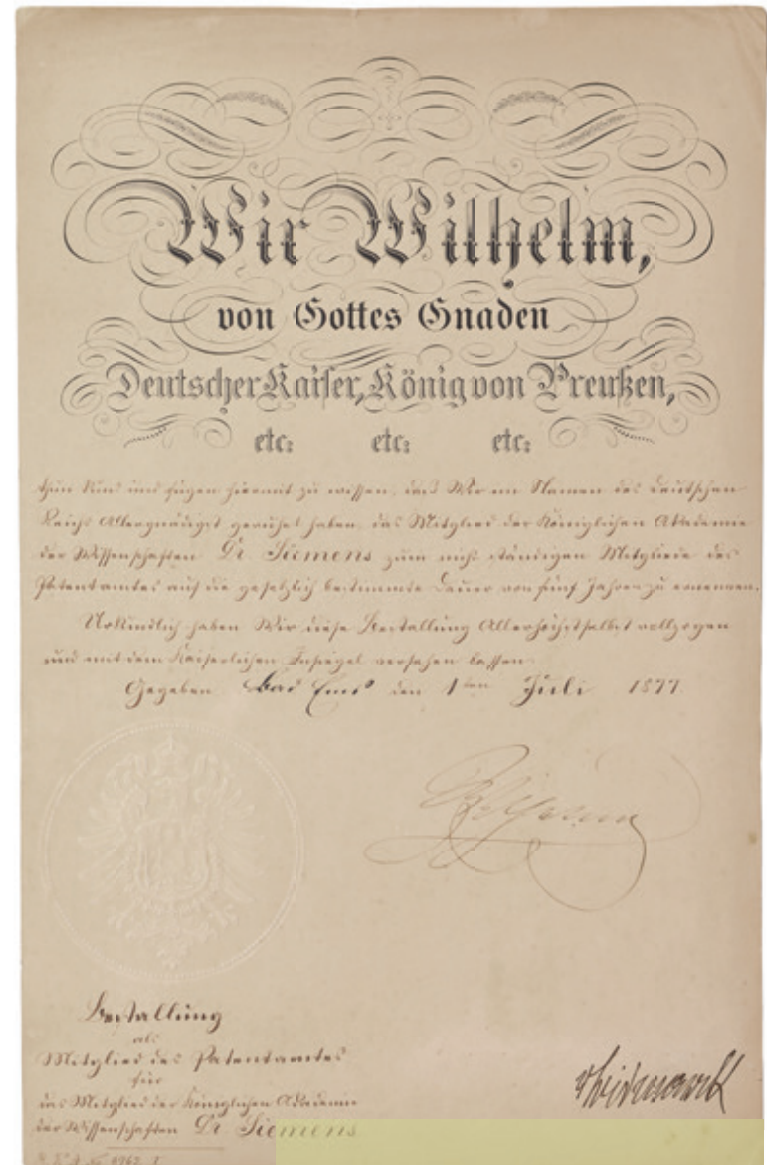 Wir Wilhelm,
von Gottes Gnaden
Deutscher Kaiser, König von Preußen,
etc: etc: etc:
thun kund und fügen hiermit zu wissen, daß Wir im Namen des Deutschen
Reichs Allergnädigst geruhet haben, das Mitglied der Königlichen Akademie
der Wissenschaften Dr. Siemens zum nicht ständigen Mitgliede des
Patentamtes auf die gesetzlich bestimmte Dauer von fünf Jahren zu ernennen.
Urkundlich haben Wir diese Bestallung Allerhöchstselbst vollzogen
und mit dem Kaiserlichen Insiegel versehen lassen.
Gegeben Bad Ems den 1ten Juli 1877
Wilhelm
Bestallung
als
Mitglied des Patentamtes
für
das Mitglied der Königlichen Akademie
der Wissenschaften Dr. Siemens